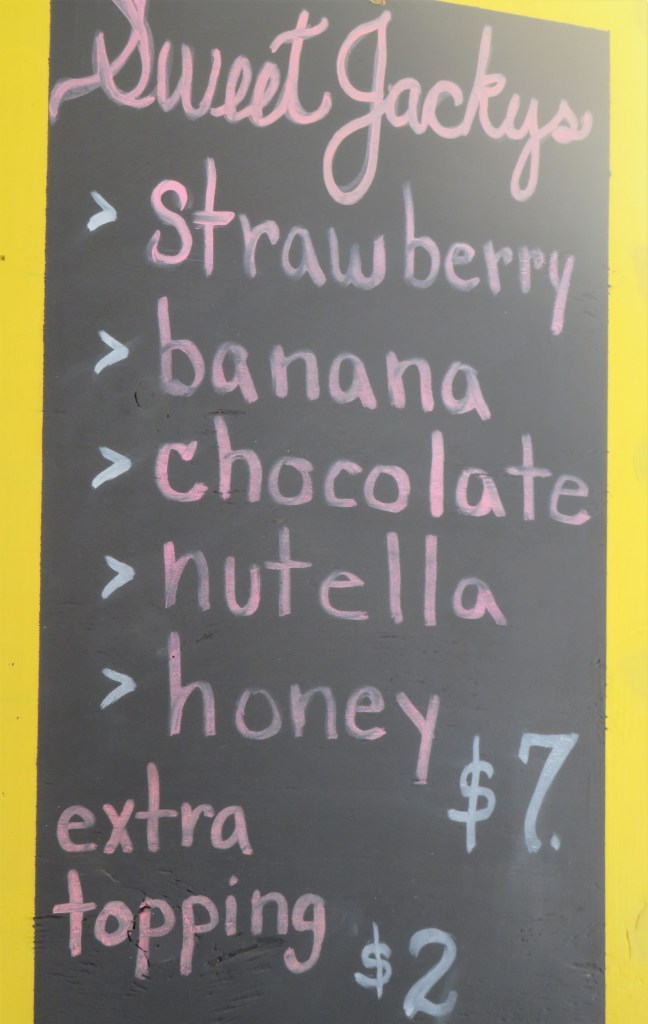 Sweet Jackys
> strawberry
> banana
> chocolate
> nutella
> honey
$7.
extra
topping
$2